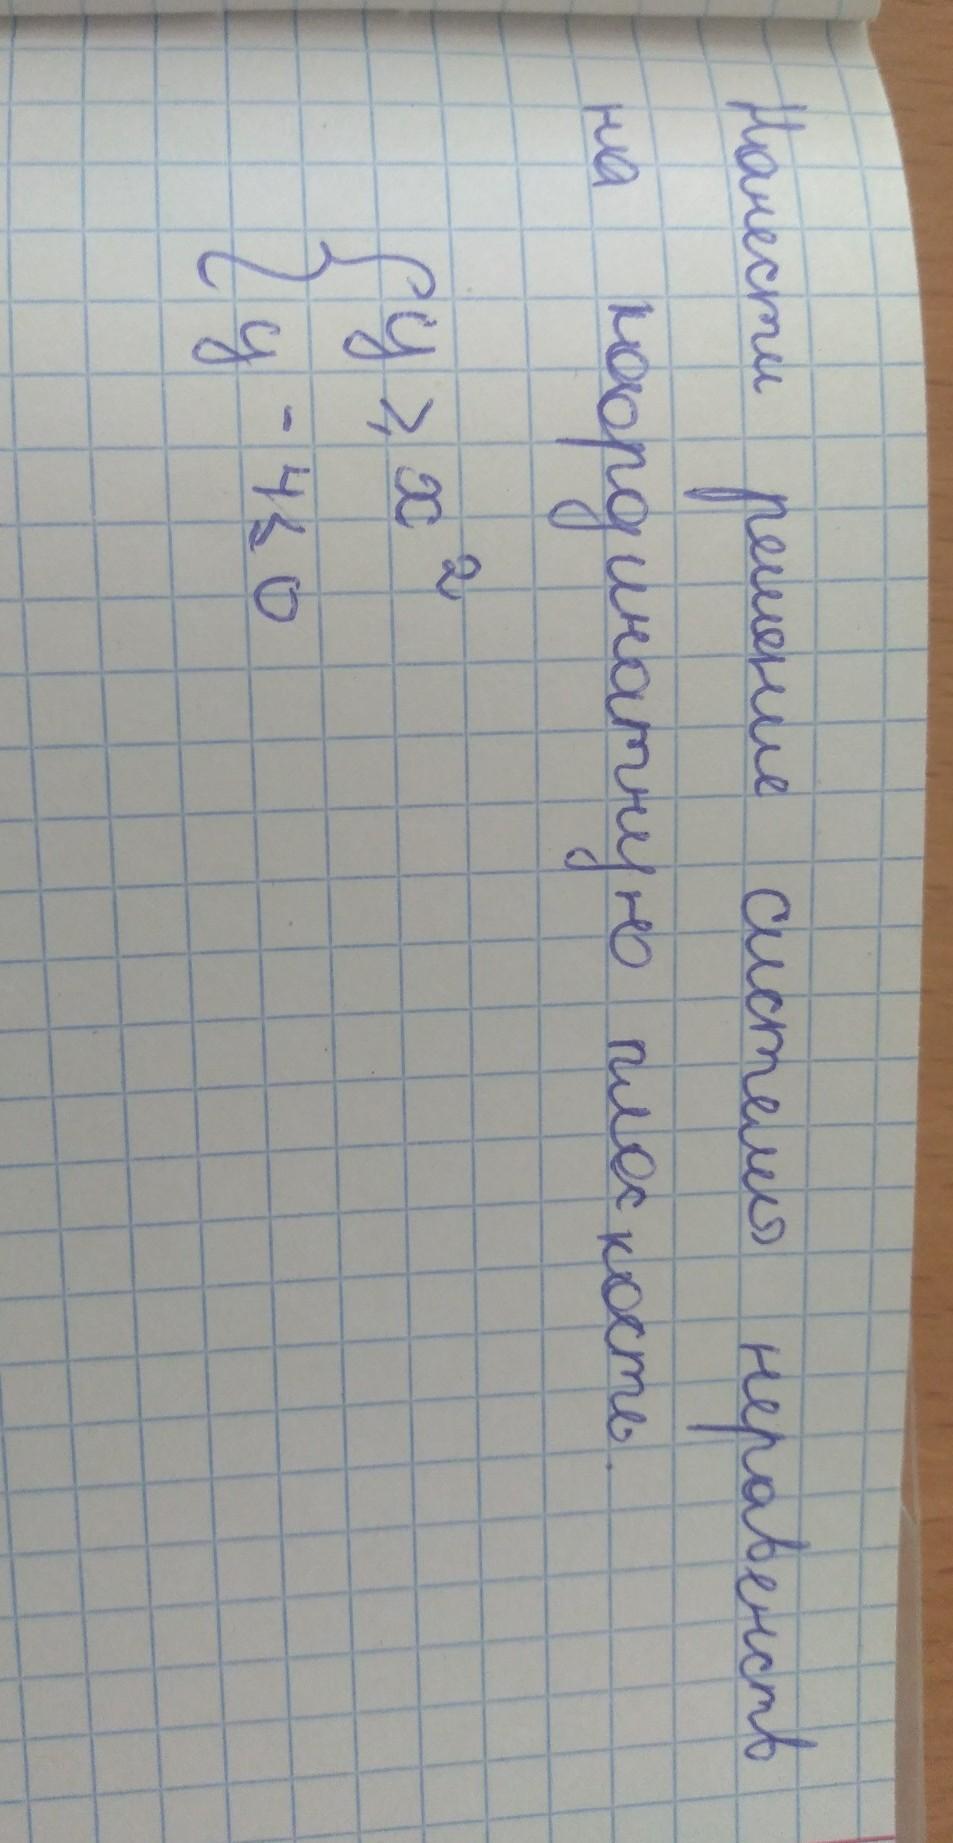 Нанести решение системы неравенств
на координатную плоскость.
{ y ⩾ x²
y - 4 ≤ 0